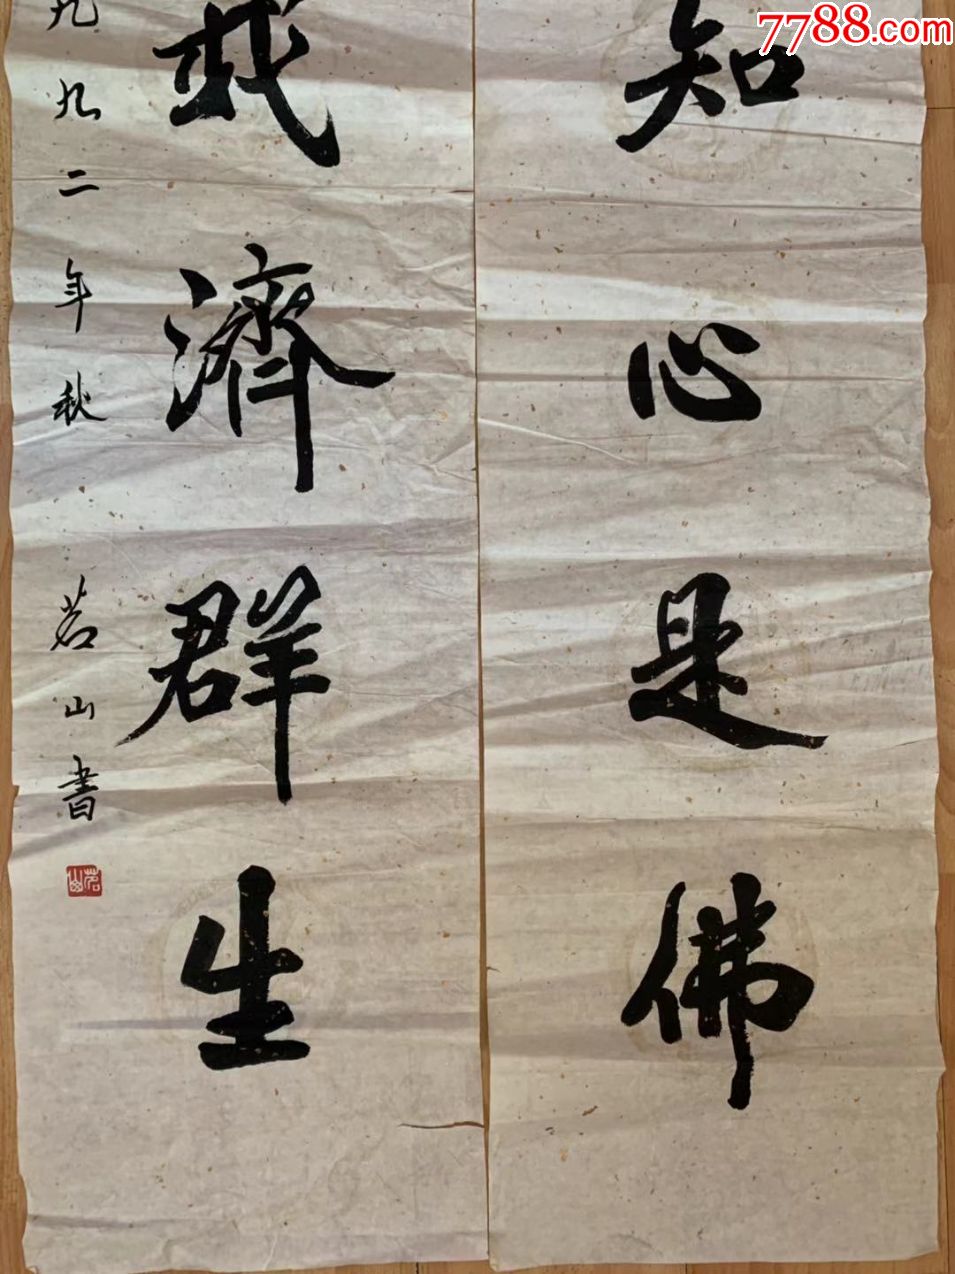 知心是佛
我濟群生
九九二年秋 茗山書
茗山
7788.com